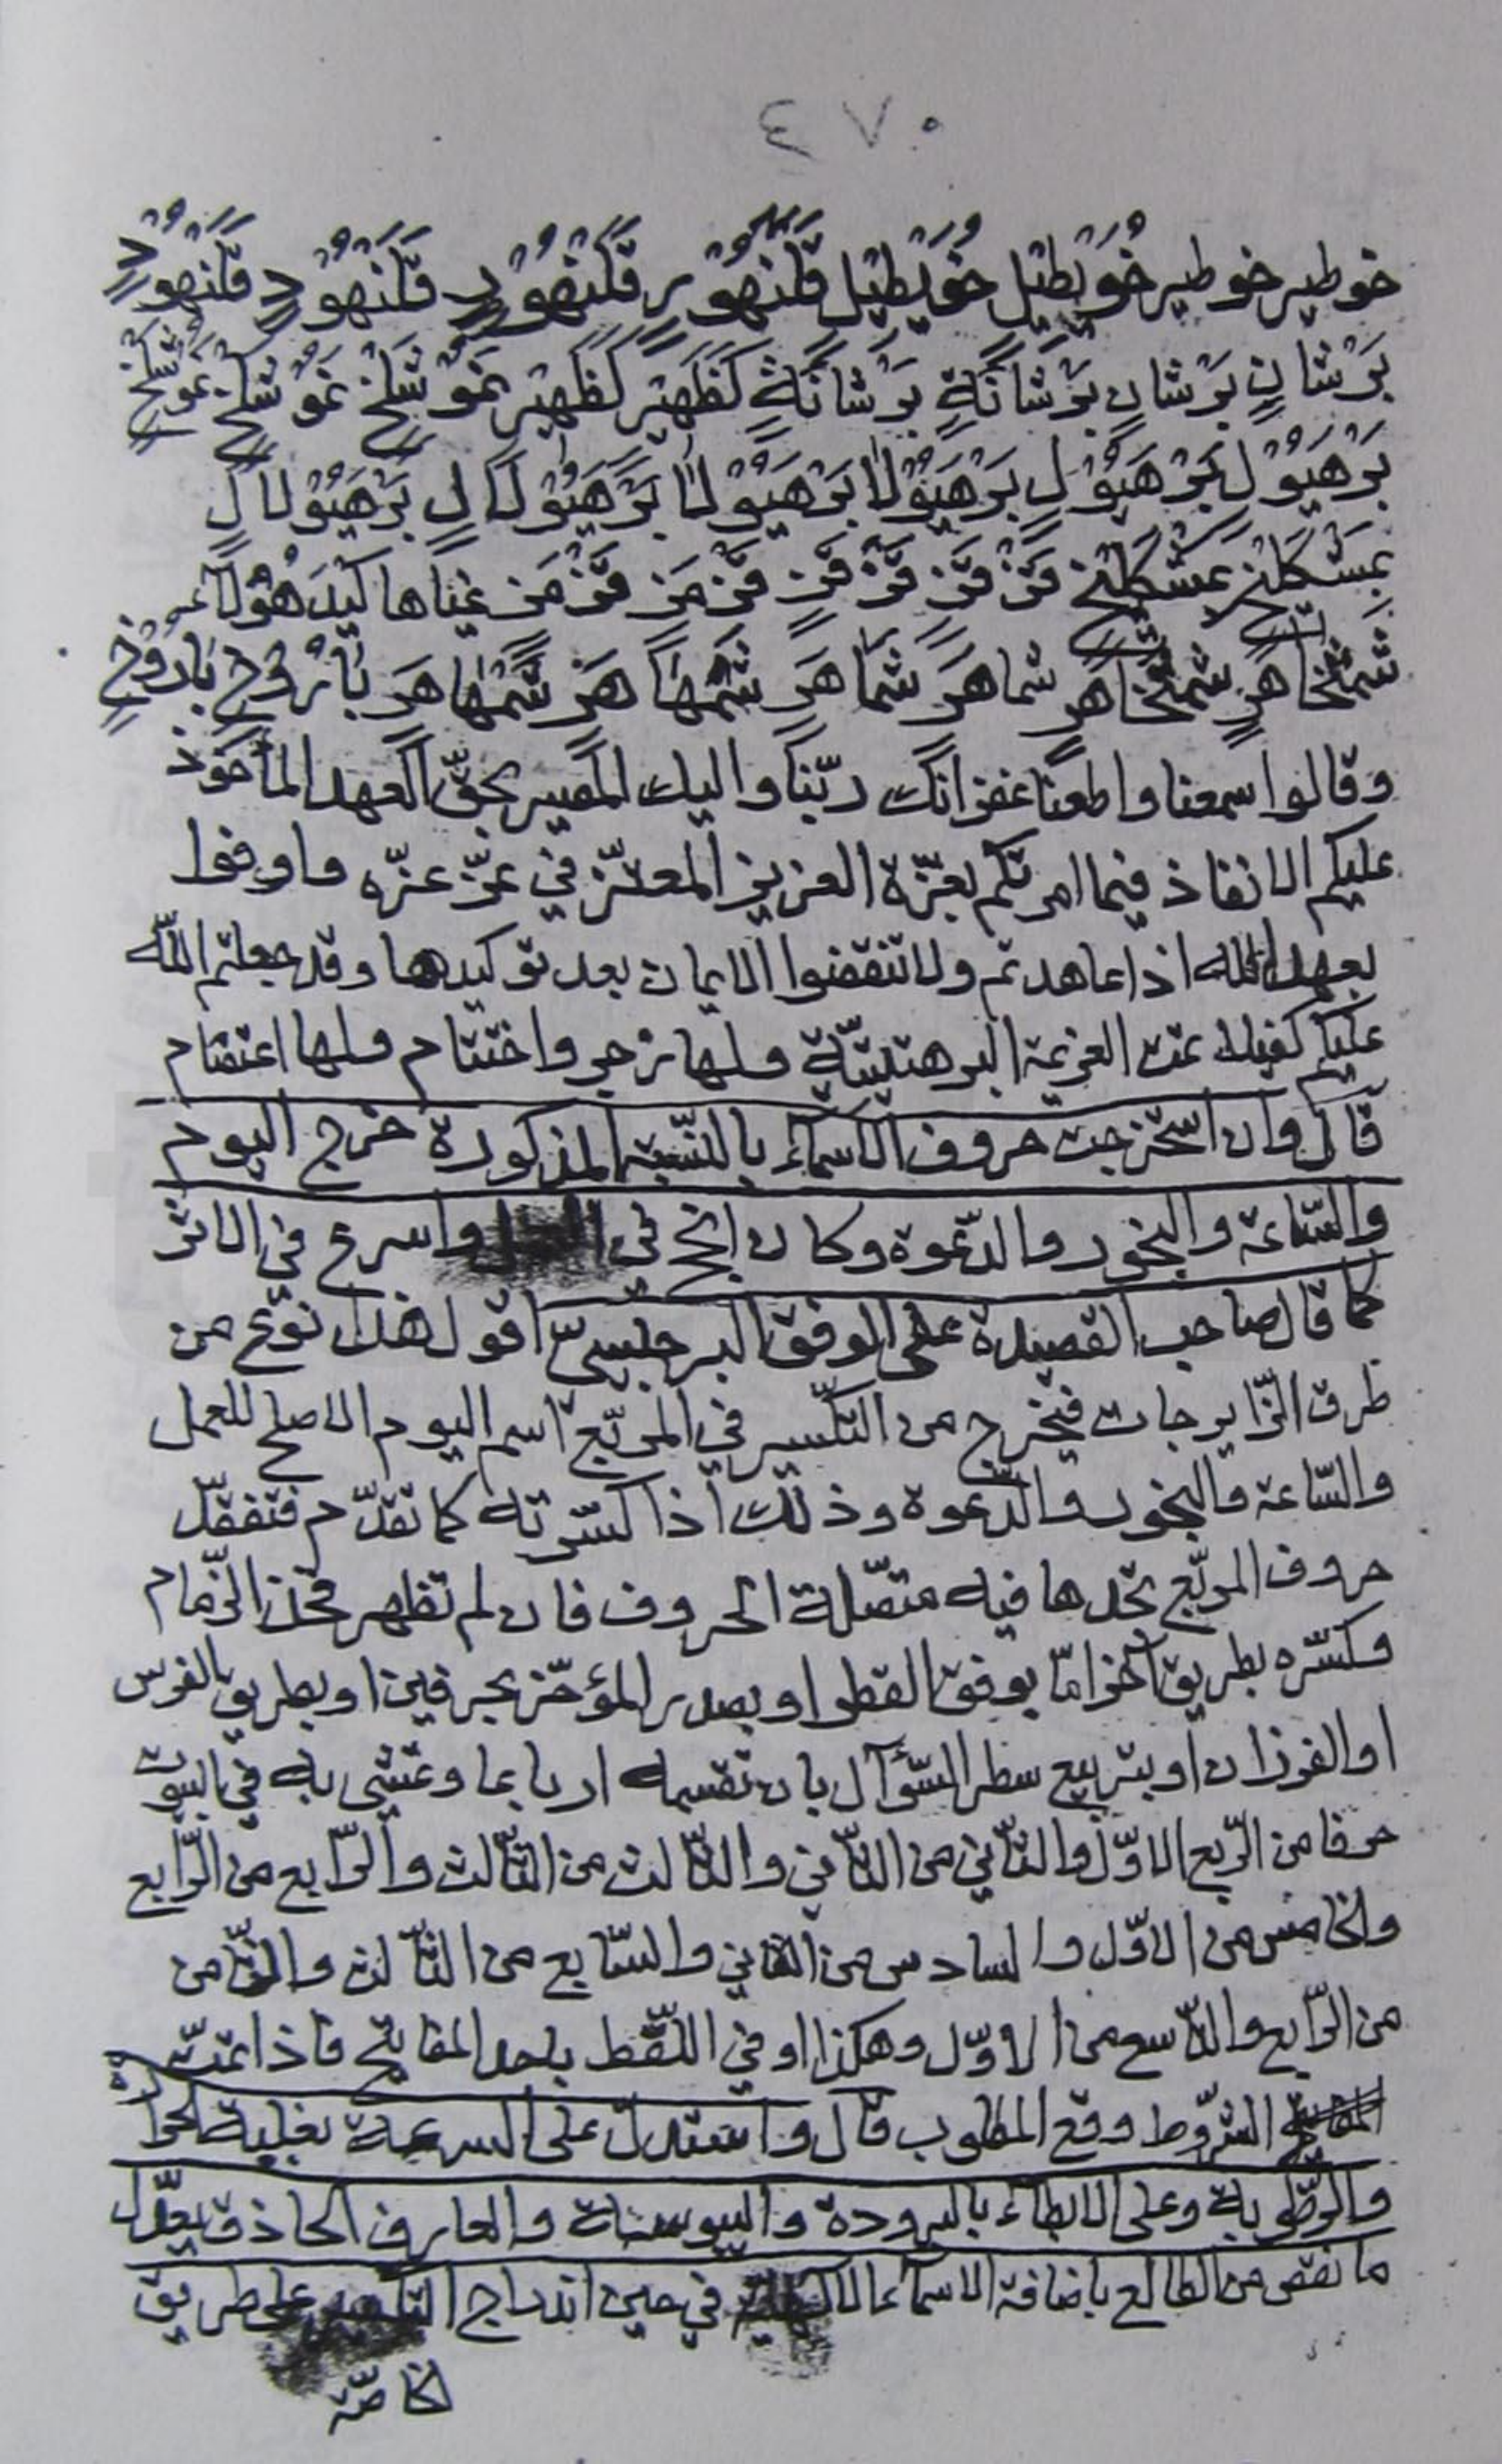 ٤٧٠
خوطير خوطير خُوَيْطيل خُوَيْطيل قَلَنْهُودٍ قَلَنْهُودٍ قَلَنْهُودٍ قَلَنْهُودٍ
بَرْشَانٍ بَرْشَانٍ بَرْشَانَةٍ بَرْشَانَةٍ كَظْهِيرٍ كَظْهِيرٍ نَمُوْشَلَخٍ نَمُوْشَلَخٍ نَمُوْشَلَخٍ
بَرْهَيُوْلٍ بَرْهَيُوْلٍ بَرْهَيُوْلَا بَرْهَيُوْلَا بَرْهَيُوْلَالٍ بَرْهَيُوْلَالٍ
قَزٍ قَزٍ قَزٍ قَزٍ قز مز قز مز غياها كيدهولا
شمخاهرٍ شمخاهرٍ شماهر شماهر شمهاهر شمهاهر باروخ باروخ
وقالوا سمعنا واطعنا غفرانك ربّنا واليك المصير بحقّ العهد المأخوذ
عليكم الانفاذ فيما امرتكم بعزّة العزيز المعتزّ في عزّ عزّه واوفوا
بعهد الله اذا عاهدتم ولا تنقضوا الايمان بعد توكيدها وقد جعلتم الله
عليكم كفيلا تمت العزيمة البرهتيّة ولها زجر واختتام ولها اعتقام
قال وان استخرجت حروف الاسماء بالنّسبة المذكورة خرج اليوم
والسّاعة والبخور والدّعوة وكان انجح في واسرع في الاثر
كما قال صاحب القصيدة على الوفق البرجليسيّ اقول هذا نوع من
طرق الزّايرجات فيخرج من التكسير في المربّع اسم اليوم الاصلح للعمل
والسّاعة والبخور والدعوة وذلك اذا كسّرته كما تقدّم فتفقّد
حروف المربّع تجدها فيه متصّلة الحروف فان لم تظهر فخذ الزّمام
وكسّره بطريق آخر امّا بوفق القطر او بصدر المؤخّر بحرفين او بطريق الفرس
او الفرزان او بتربيع سطر السّؤال بان تقسمه ارباعا وتمشى به في البيوت
حرفا من الرّبع الاوّل والثّاني من الثّاني والثّالث من الثّالث والرّابع من الرّابع
والخامس من الاوّل والسادس من الثاني والسّابع من الثّالث والثّامن
من الرّابع والتّاسع من الاوّل وهكذا او في اللّقط باحد المفاتيح فاذا تمت
الشّروط وقع المطلوب قال واستدلّ على السرعة بغلبة الحرارة
والرّطوبة وعلى الابطاء بالبرودة واليبوسة والعارف الحاذق يعدّل
ما نقص من الطالع باضافة الاسماء الالهيّة في حين اندراج التكسير على طريق
الخاصّة